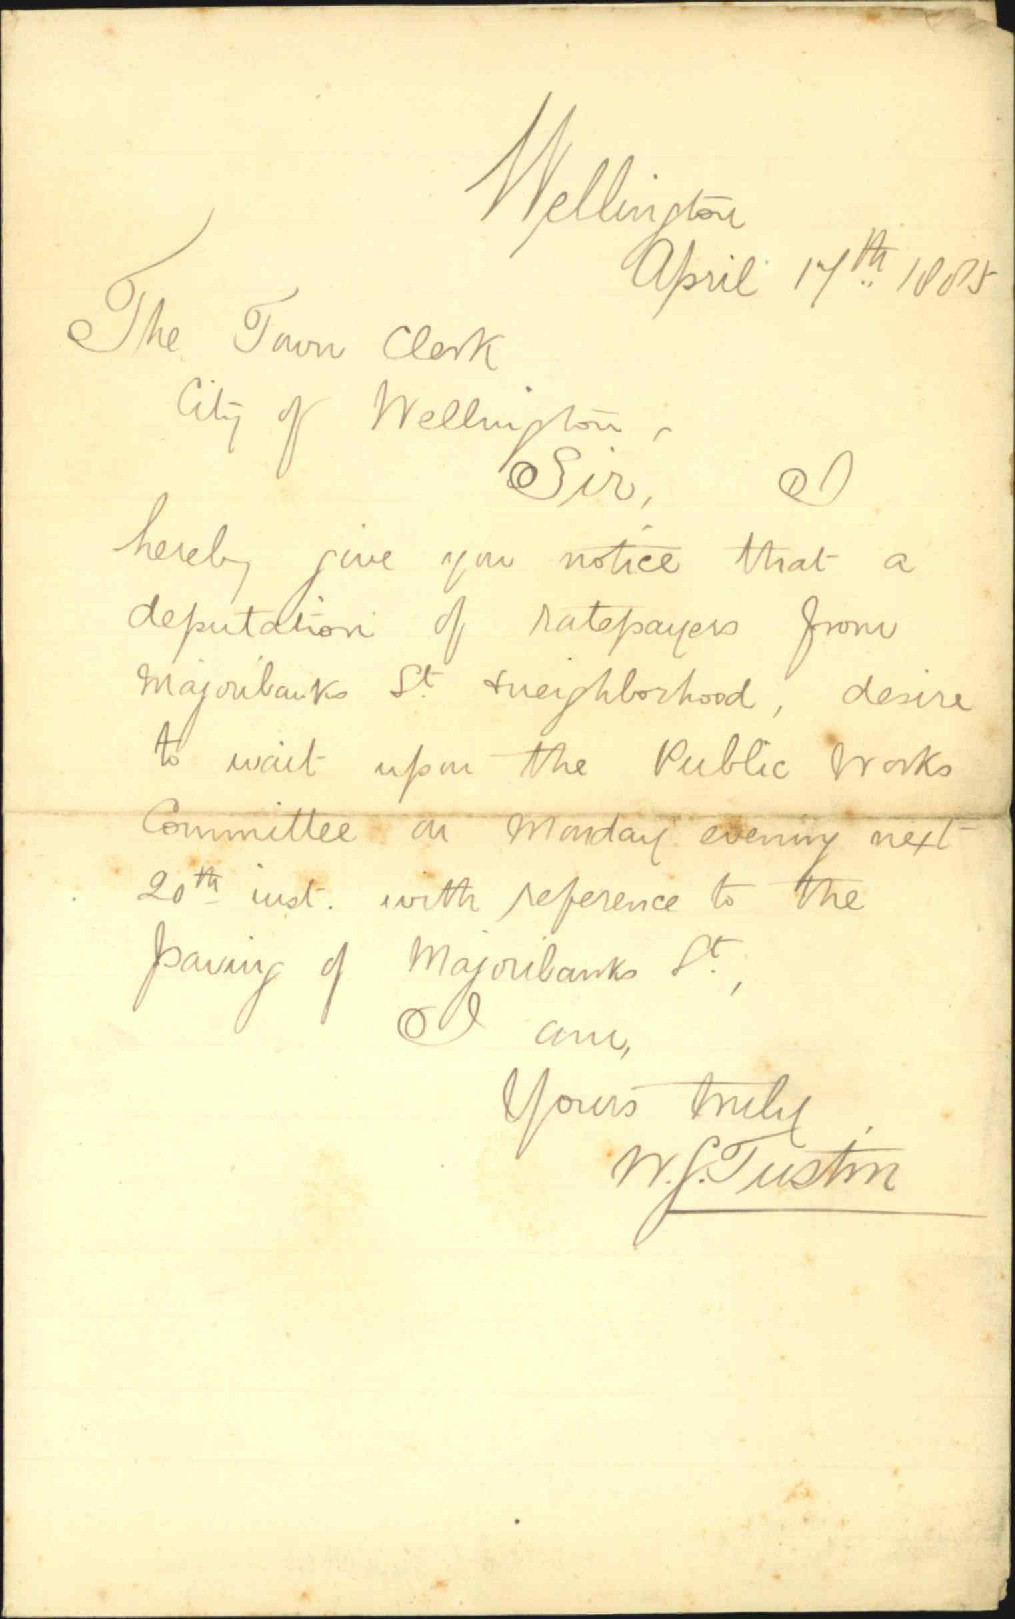 Wellington
April 17th 1885
The Town Clerk
City of Wellington,
Sir, I
hereby give you notice that a
deputation of ratepayers from
Majoribanks St. & neighborhood, desire
to wait upon the Public Works
Committee on Monday evening next
20th inst. with reference to the
paving of Majoribanks St.,
I am,
Yours truly,
W.J. Tustin